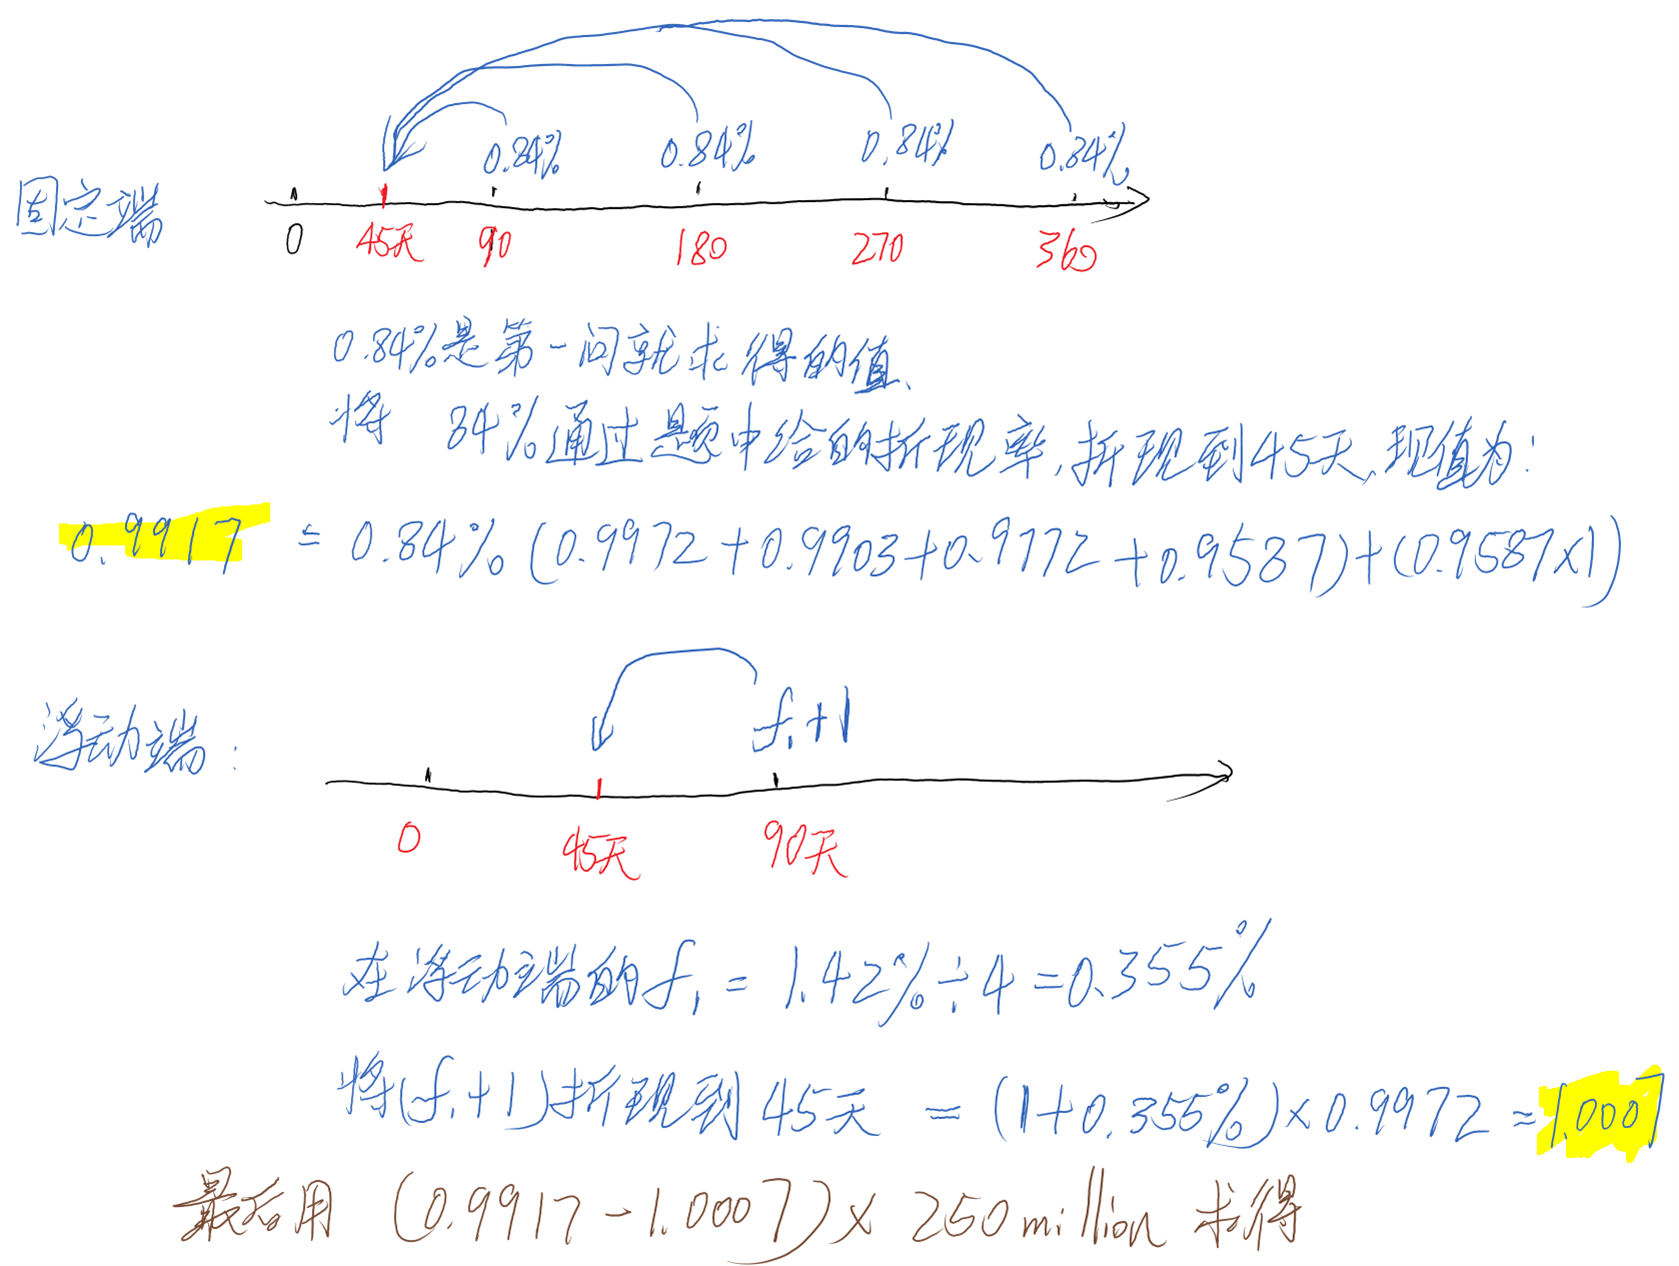 0.84% 0.84% 0.84% 0.84%
固定端
0 45天 90 180 270 360
0.84%是第一问就求得的值、
将 84%通过题中给的折现率,折现到45天,现值为:
0.9917 = 0.84% (0.9972+0.9903+0.9772+0.9587)+(0.9587×1)
f₁+1
浮动端:
0 45天 90天
在浮动端的f₁ = 1.42%÷4=0.355%
将(f₁+1)折现到45天 = (1+0.355%)×0.9972 = 1.0007
最后用 (0.9917-1.0007)× 250million 求得